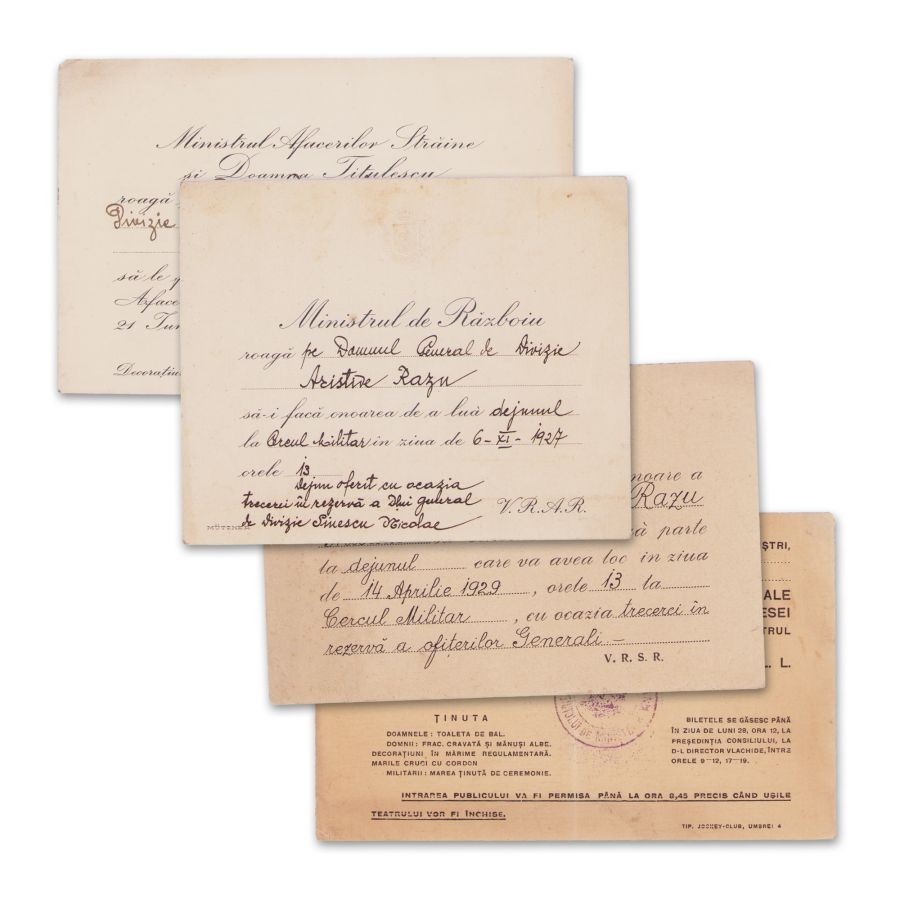 Ministrul Afacerilor Străine
și Doamna Titulescu
roagă
Divizie
să le
Aface
21 Iun
Decorațiu
Ministrul de Războiu
roagă pe Domnul General de Divizie
Aristide Razu
să-i facă onoarea de a luà dejunul
la Cercul Militar in ziua de 6-XI-1927
orele 13
Dejun oferit cu ocazia
trecerei în rezervă a Dlui general
de Divizie Sinescu Nicolae
V.R.A.R.
MÜTZNER
noare a
Razu
ă parte
la dejunul care va avea loc in ziua
de 14 Aprilie 1929, orele 13 la
Cercul Militar, cu ocazia trecerei în
rezervă a ofițerilor Generali
V. R. S. R.
ȘTRI,
ALE
ESEI
TRUL
L. L.
ȚINUTA
DOAMNELE: TOALETA DE BAL.
DOMNII: FRAC. CRAVATĂ ȘI MĂNUȘI ALBE.
DECORAȚIUNI ÎN MĂRIME REGULAMENTARĂ.
MARILE CRUCI CU CORDON
MILITARII: MAREA ȚINUTĂ DE CEREMONIE.
BILETELE SE GĂSESC PÂNĂ
ÎN ZIUA DE LUNI 28, ORA 12, LA
PREȘEDINȚIA CONSILIULUI, LA
D-L DIRECTOR VLACHIDE, ÎNTRE
ORELE 9—12, 17—19.
INTRAREA PUBLICULUI VA FI PERMISA PÂNĂ LA ORA 8,45 PRECIS CÂND UȘILE
TEATRULUI VOR FI ÎNCHISE.
TIP. JOCKEY-CLUB, UMBREI 4